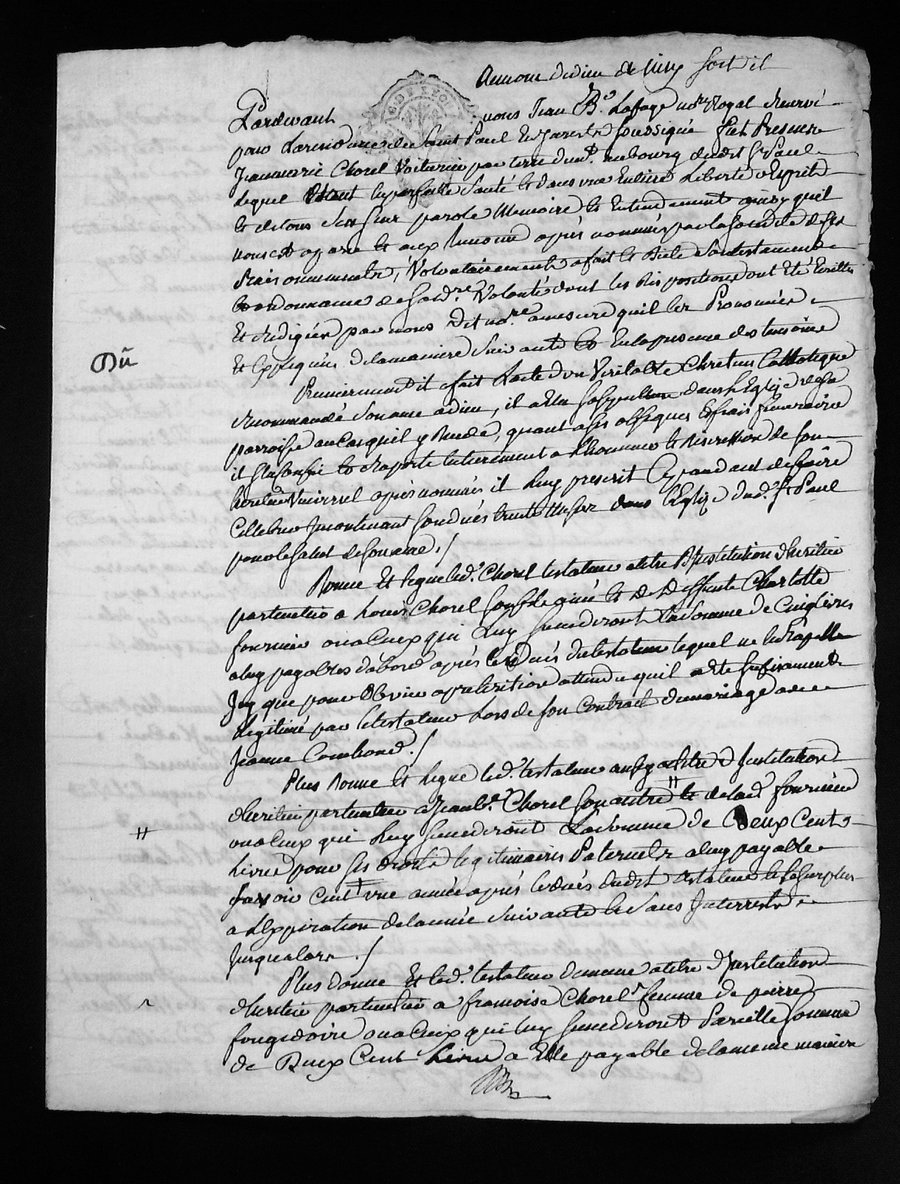 Au nom de dieu de luy soit il
G DE LYON
Pardevant nous Jean B.te Lafage no.re Royal Reservé
pour la residence de Saint Paul En jarest soussigné fut Present
Jeanmarie Chorel Voiturier par terre du faubourg dudit St Paul
lequel Etant En parfaite santé et dans une Entiere Liberté d'Esprit
et de tous ses sens parole Memoire et Entendement ainsy quil
nous est aparu et aux temoins après nommés par la solidité de ses
Raisonnements, Volontairement a fait le Present testament
Et ordonnance de sa der.re Volonté dont les Dispositions ont Eté Ecrittes
Et Redigées par nous dit no.re a mesure quil les Prononcées
Et Expliquées de la maniere suivante Et En la presence des temoins
Premierement il a fait l'acte d'un Veritable Chretien Catholique
Recommandé son ame a dieu, il a Elu sa sepulture dans l'Eglise de sa
parroisse au cas quil y decede, quant a ses obseques Et frais funeraires
il s'en confie Et raporte Entierement a l'honneur Et discretion de son
heritier Universel après nommé il luy prescrit Cependant de faire
Celebrer incontinant son decès trente Messes dans l'Eglise dud. St Paul
pour le salut de son ame ./
Donne Et legue led. Chorel testateur a titre D'Institution d'heritier
particulier a Louis Chorel son fils ainé Et de Deffunte Charlotte
fournier ou a Ceux qui Luy succederont La somme de Cinq Livres
a luy payables d'abord après le decès du testateur lequel ne le Rapelle
Icy que pour obvier a preterition attendu quil a Eté sufisament
Legitimé par le testateur Lors de son Contract de mariage avec
Jeanne Combond ./
Plus Donne Et legue led. testateur aussy a titre d'Institution
d'heritier particulier a Jean b.te Chorel son autre fils et de lad. fournier
ou a Ceux qui Luy succederont La somme de Deux Cent
Livres pour ses droits legitimaires Paternels a luy payable
savoir Cent Une année après le decès dudit testateur Et le surplus
a L'expiration de l'année suivante Et Sans Interrests
jusqu'alors ./
Plus donne Et led. testateur donne a titre d'Institution
d'heritier particulier a francoise Chorel femme de pierre
fougedoire ou a Ceux qui luy succederont Pareille somme
de Deux Cent Livres a Elle payable de la meme maniere